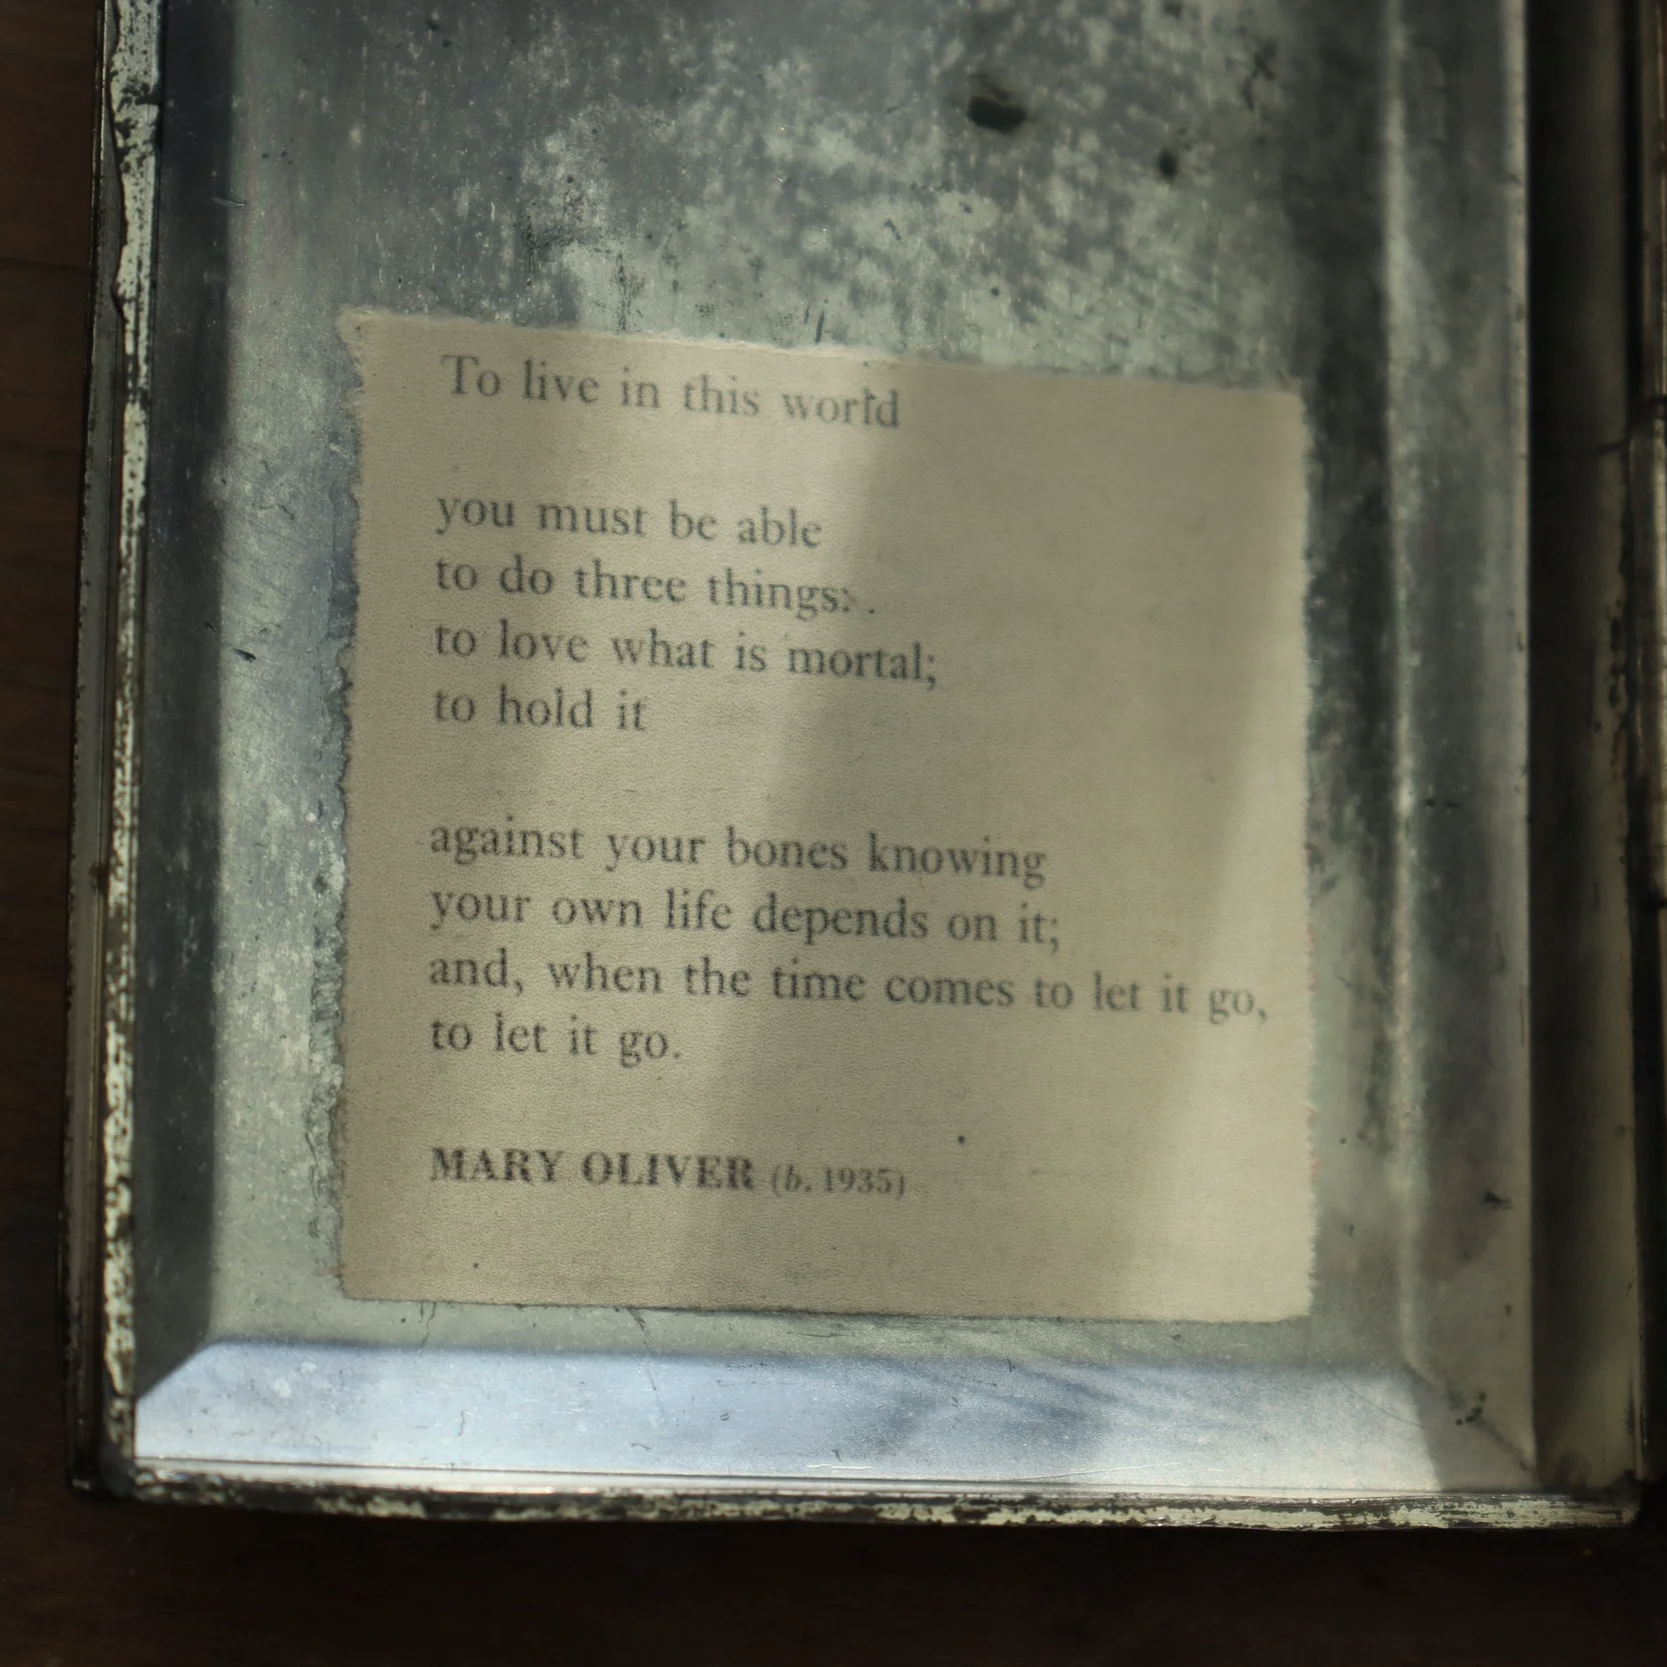 To live in this world
you must be able
to do three things:
to love what is mortal;
to hold it
against your bones knowing
your own life depends on it;
and, when the time comes to let it go,
to let it go.
MARY OLIVER (b. 1935)